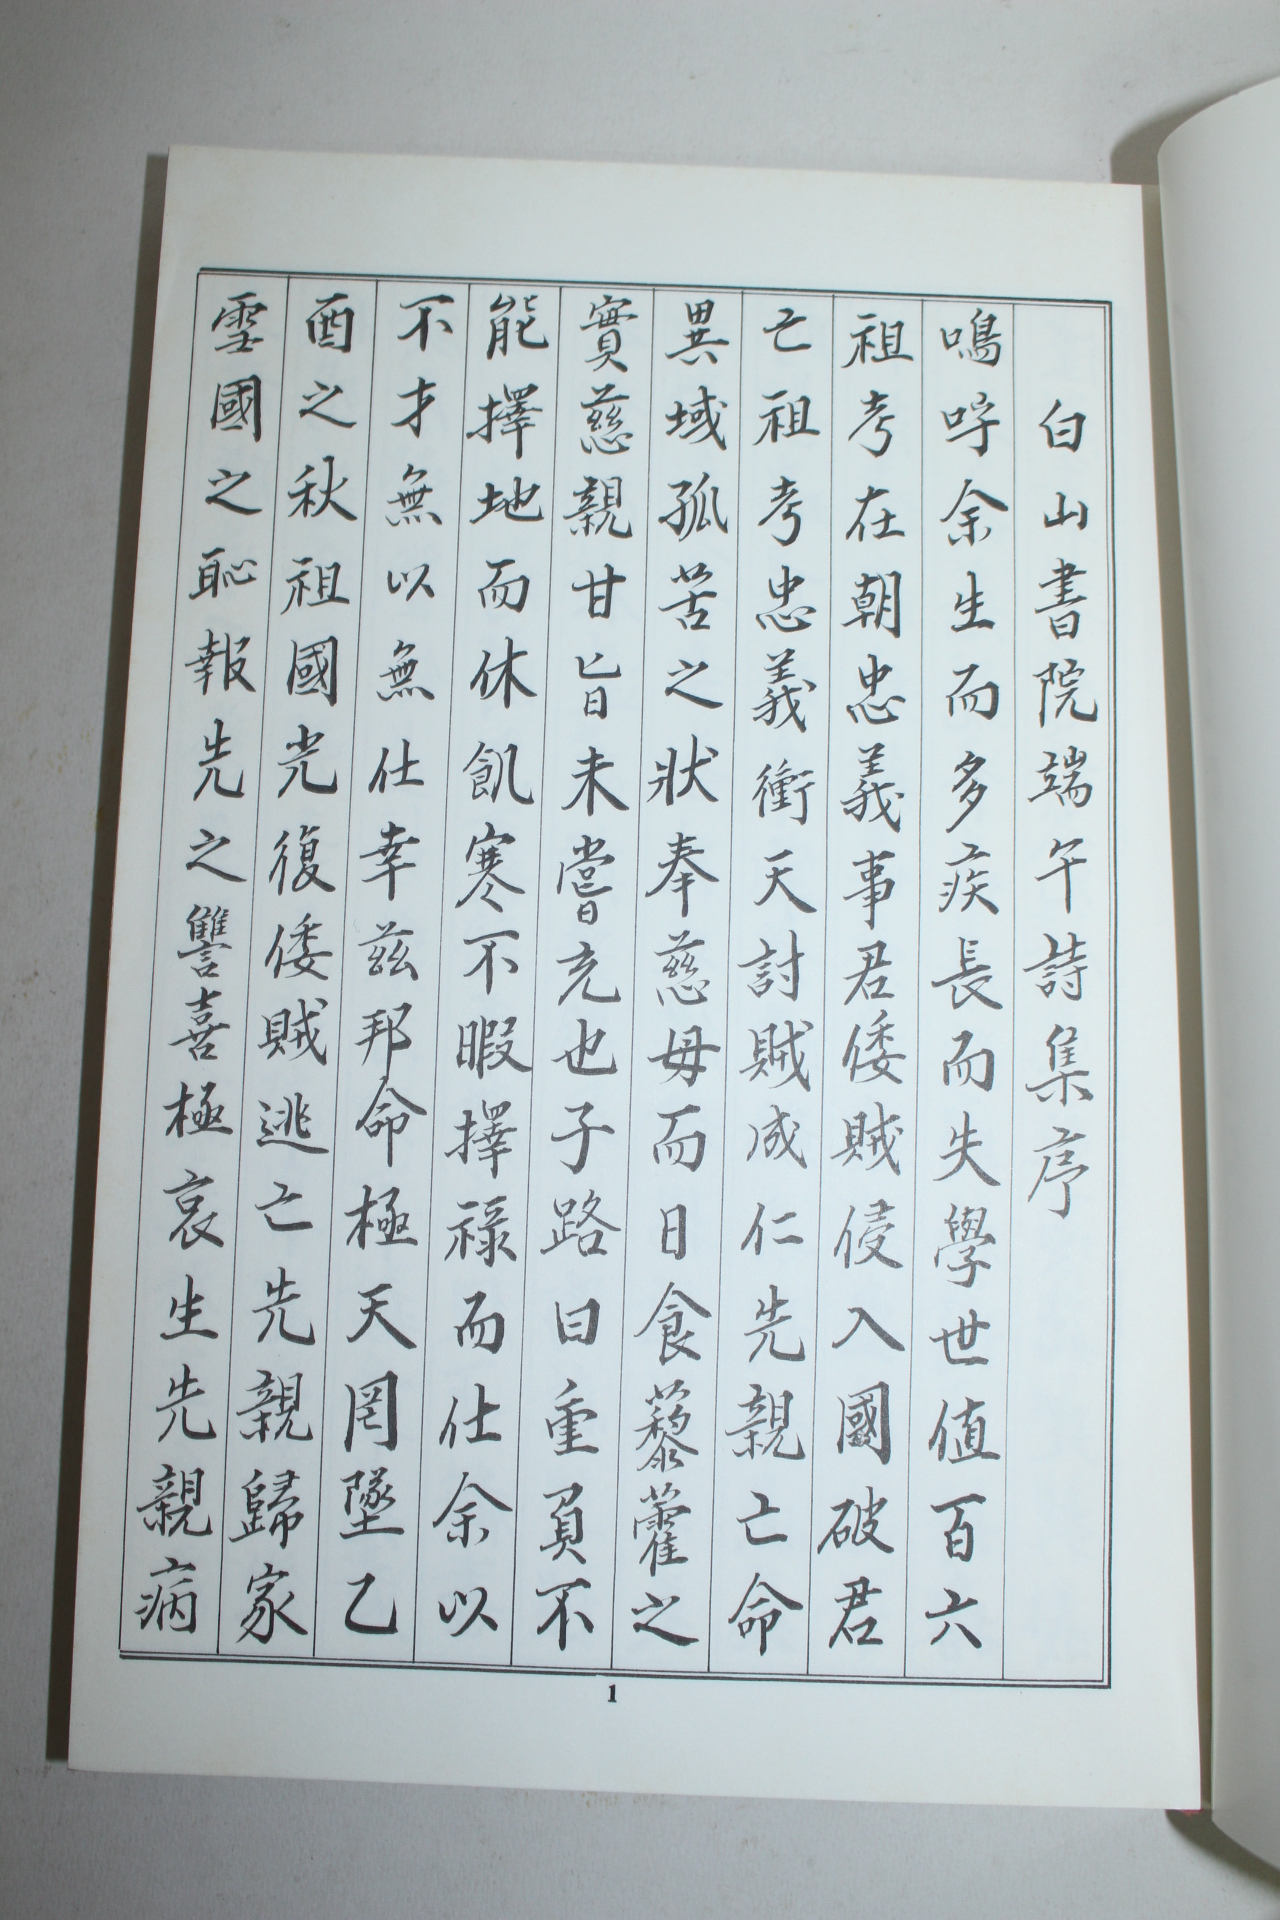 白山書院端午詩集序
嗚呼余生而多疾長而失學世値百六
祖考在朝忠義事君倭賊侵入國破君
亡祖考忠義衝天討賊成仁先親亡命
異域孤苦之狀奉慈母而日食藜藿之
實慈親甘旨未嘗充也子路曰重負不
能擇地而休飢寒不暇擇祿而仕余以
不才無以無仕幸玆邦命極天罔墜乙
酉之秋祖國光復倭賊逃亡先親歸家
雪國之恥報先之讐喜極哀生先親病
1